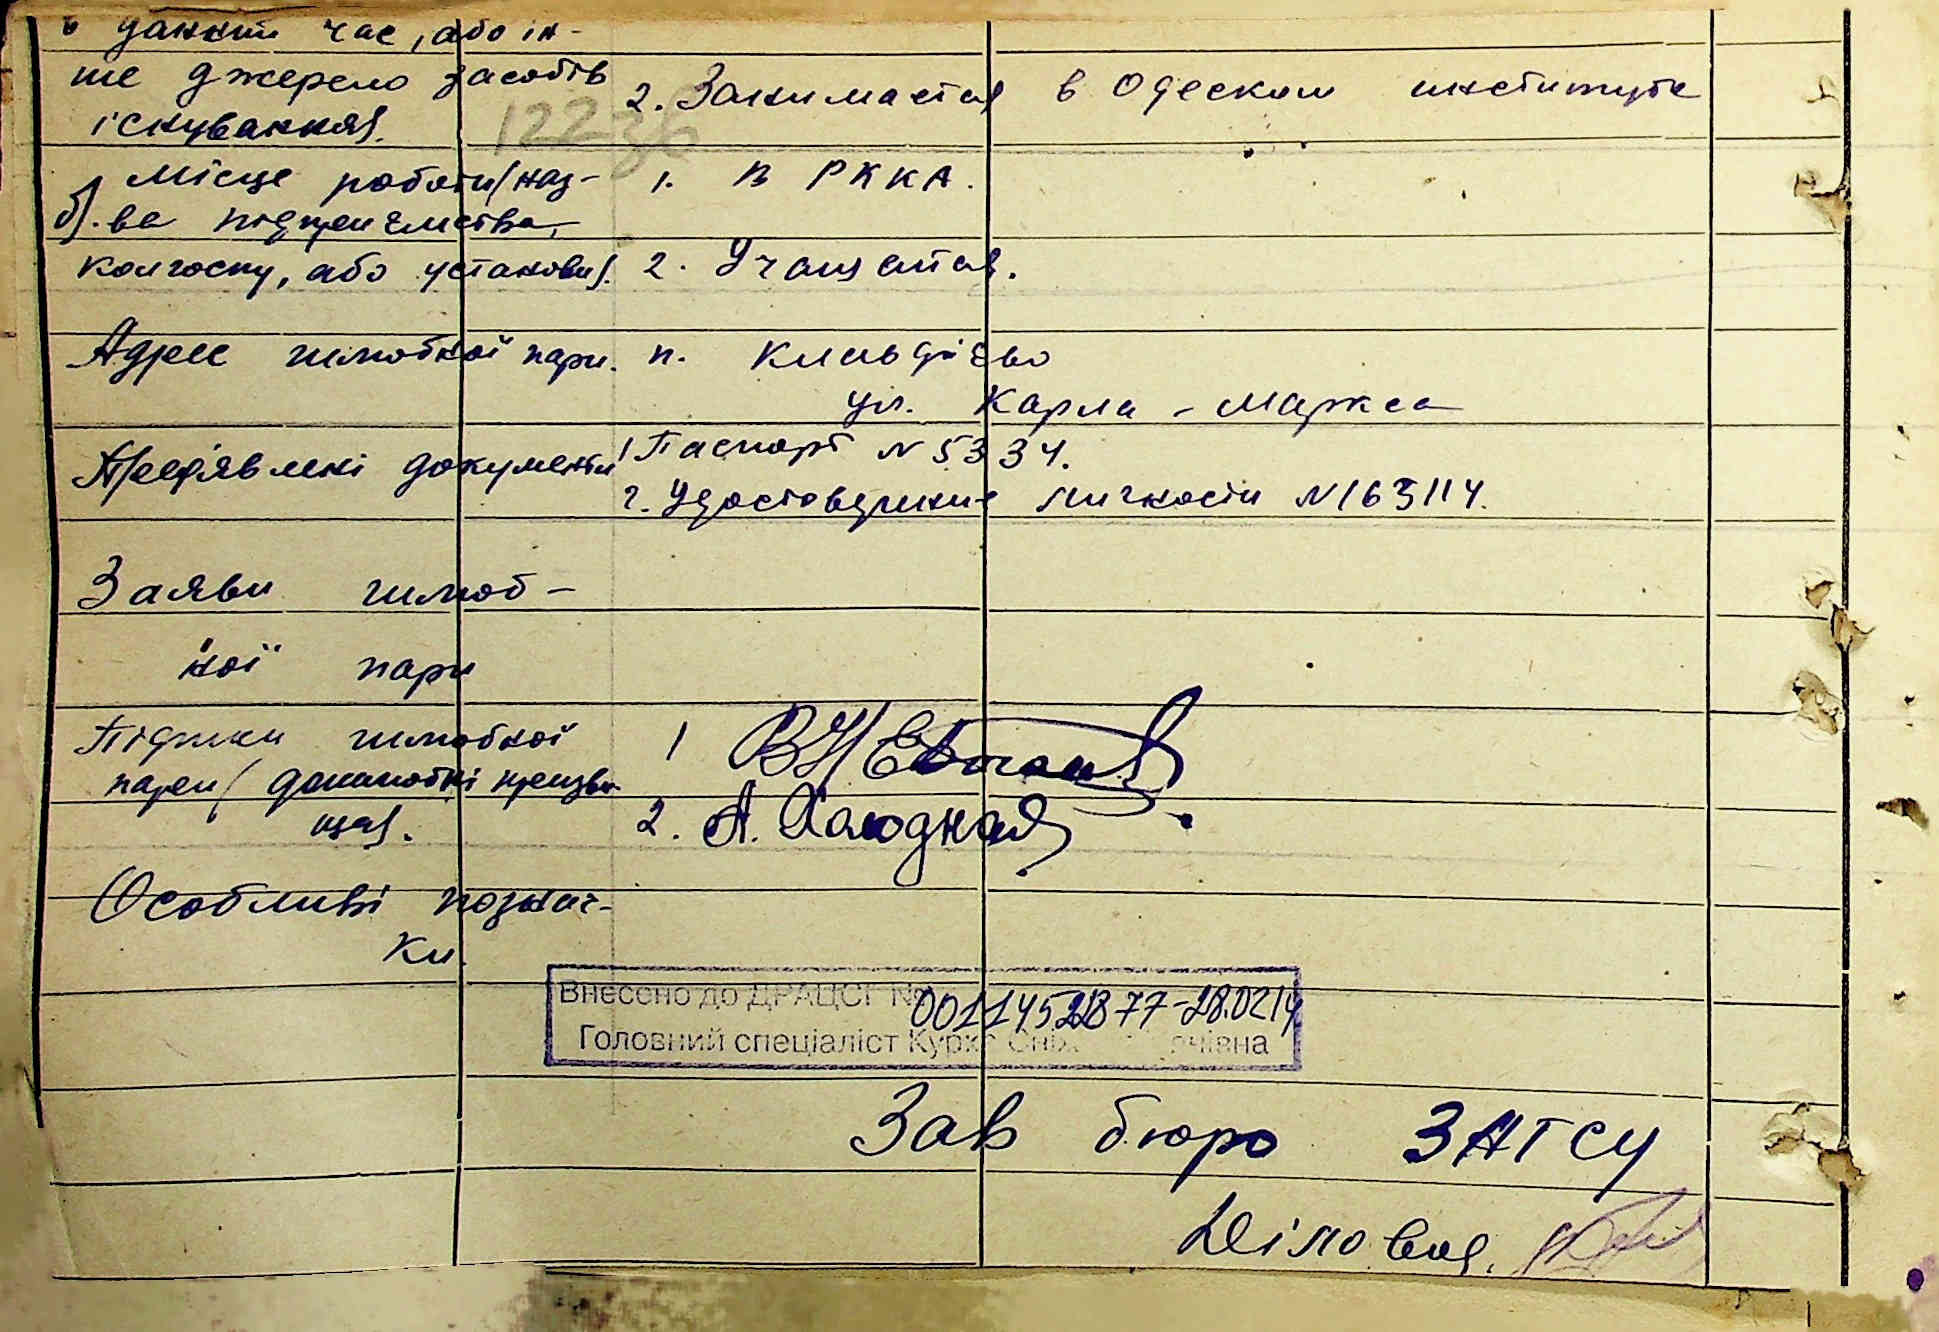 в даний час, або ін-
ше джерело засобів
існування).
2. Занимается в Одеском институте
12236
б). Місце роботи (наз-
ва підприємства,
колгоспу, або установи).
1. В РККА.
2. Учащаяся.
Адрес шлюбної пари.
п.
ул. Карла - Маркса
Пред'явлені документи
1 Паспорт N 5334.
2. Удостоверение личности N 163114.
Заяви шлюб-
ної пари
Підписи шлюбної
пари (дошлюбні прізви-
ща).
1
2. А. Холодная
Особливі познач-
ки.
Внесено до ДРАЦСГ № 00114522877-28.0214
Головний спеціаліст
Зав бюро ЗАГСу
Діловая.